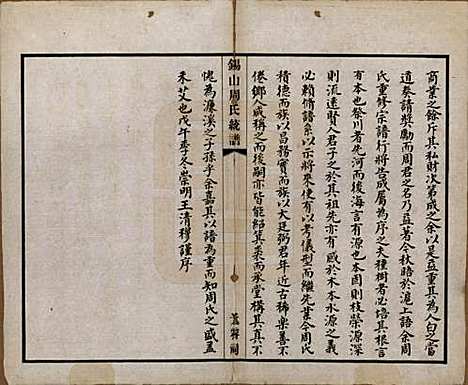 商業之餘斥其私財次第成之余以是益重其為人白之當
道奏請獎勵而周君之名乃益著今秋晤於滬上語余周
氏重修宗譜行將告成屬為序之夫種樹者必培其根言
有本也祭川者先河而後海言有源也本固則枝榮源深
則流遠賢人君子之於其祖先亦有感於木本水源之義
必賴脩譜系以示將來使有以考儀型而繼先業今周氏
積德而族以昌務實而族以大廷弼君年近古稀樂善不
倦鄉人咸稱之而後嗣亦皆能紹箕裘而承堂構其真不
錫山周氏統譜
愧為濂溪之子孫乎余嘉其以譜為重而知周氏之盛蓋
未艾也戊午季冬崇明王清穆謹序